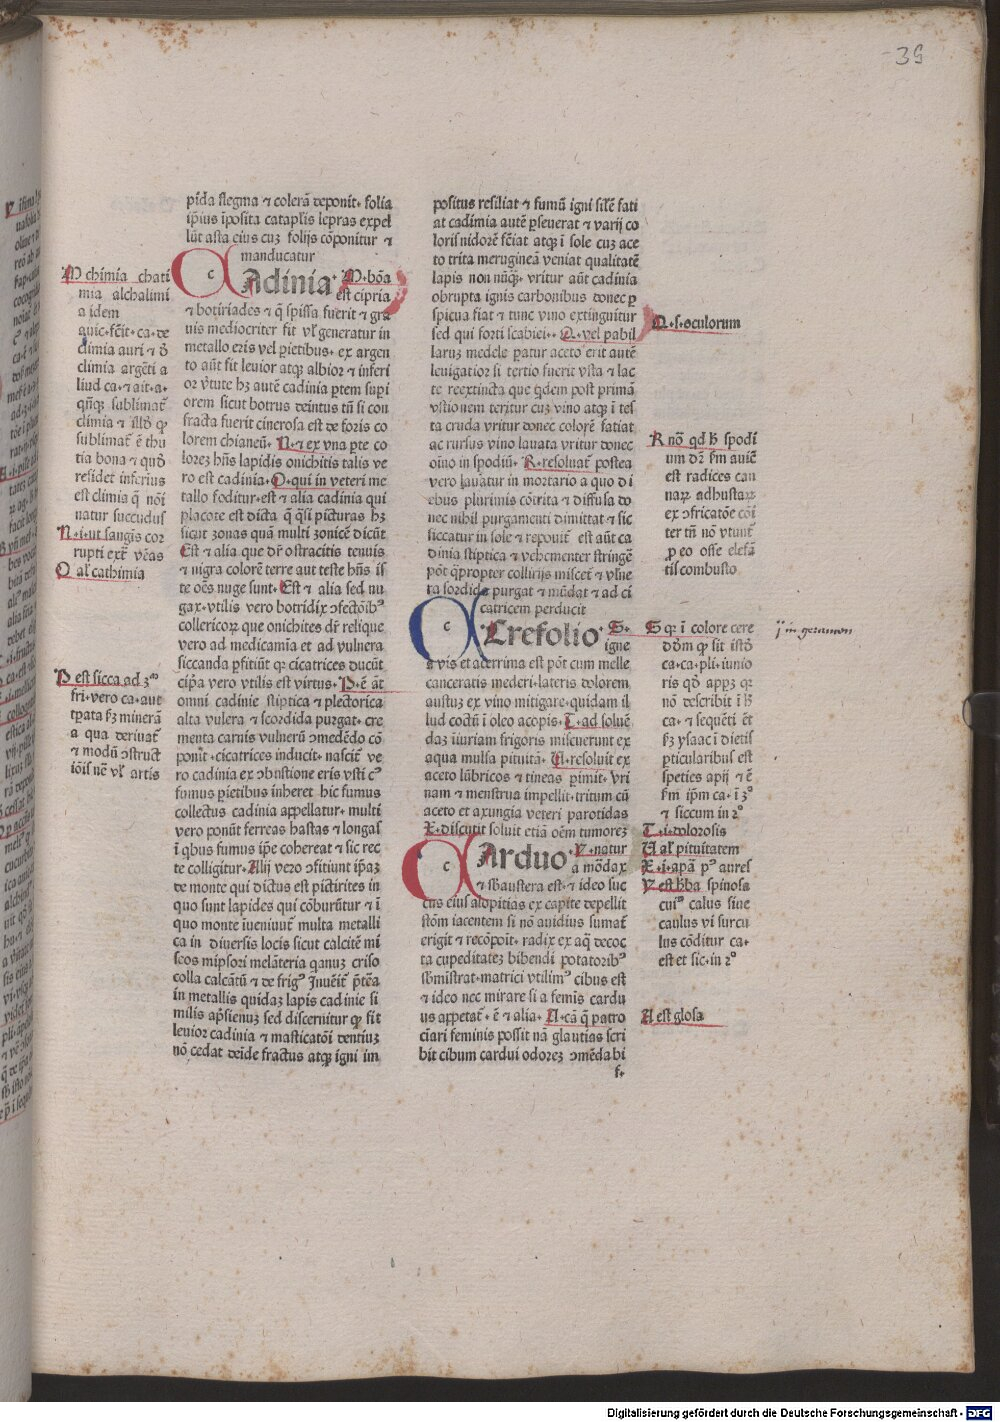 39
pīda flegma ⁊ colerā deponit· folia
ip̄ius īposita cataplis lepras expel
lūt asta eius cuꝫ folijs cōponitur ⁊
manducatur
Cadinia· M·bōa
est cipria
⁊ botriades ⁊ q̄ spissa fuerit ⁊ gra
uis mediocriter fit vl̓ generatur in
metallo eris vel p̄ietibus· ex argen
to aūt fit leuior atqꝫ albior ⁊ inferi
or v̓tute hꝫ autē cadinia ptem supi
orem sicut botrus deintus tn̄ si con
fracta fuerit cinerosa est de foris co
lorem chianeū· N·⁊ ex vna ꝑte co
loreꝫ hn̄s lapidis onichitis talis ve
ro est cadinia· O·qui in veteri me
tallo foditur·est ⁊ alia cadinia qui
placote est dicta q̄ q̄si picturas hꝫ
sicut zonas quā multi zonicē dicūt
Est ⁊ alia que dr̄ ostracitis tenuis
⁊ nigra colorē terre aut teste hn̄s is
te oēs nuge sunt· Est ⁊ alia sed nu
gax·vtilis vero botridix ↄfectōibꝰ
collericoꝝ que onichites dr̄ relique
vero ad medicamīa et ad vulnera
siccanda ꝓfitiūt qꝛ cicatrices ducūt
cip̄a vero vtilis est virtus· P·ē āt
omni cadinie stiptica ⁊ plectorica
alta vulera ⁊ scordida purgat· cre
menta carnis vulnerū ↄmedēdo cō
ponit· cicatrices inducit· nascit̄ ve
ro cadinia ex ↄbustione eris vsti cꝰ
fumus p̄ietibus inheret hic fumus
collectus cadinia appellatur· multi
vero ponūt ferreas hastas ⁊ longas
ī qbus fumus ip̄e cohereat ⁊ sic rec
te colligitur· Alij vero ↄfitiunt ip̄aꝫ
de monte qui dictus est pictirites in
quo sunt lapides qui cōburūtur ⁊ ī
quo monte iueniuūt multa metalli
ca in diuersis locis sicut calcitē mi
scos mipsori melāteria qanuꝫ criso
colla calcātū ⁊ de frigꝰ Inuēit̄ p̄tēa
in metallis quidaꝫ lapis cadinie si
milis ap̄sienuꝫ sed discernitur ꝙ sit
leuior cadinia ⁊ masticatōi dentiuꝫ
nō cedat deīde fractus atqꝫ igni im
positus resiliat ⁊ fumū igni silē fati
at cadimia autē ꝑseuerat ⁊ varij co
loris nidorē fēiat atqꝫ ī sole cuꝫ ace
to trita merugineā veniat qualitatē
lapis non nūqꝫ· vritur aūt cadinia
obrupta ignis carbonibus donec ꝑ
spicua fiat ⁊ tunc vino extinguitur
sed qui forti scabiei· Q·vel pabil
laruꝫ medele ꝑatur aceto erit autē
leuigatior si tertio fuerit vsta ⁊ lac
te reextincta que qdem post primā
vstionem teritur cuꝫ vino atqꝫ ī tes
ta cruda vritur donec colorē fatiat
ac rursus vino lauata vritur donec
oino in spodiū· R·resoluat̄ postea
vero lauatur in mortario a quo di
ebus plurimis cōtrita ⁊ diffusa do
nec nihil purgamenti dimittat ⁊ sic
siccatur in sole ⁊ reponit̄ est aūt ca
dinia stiptica ⁊ vehementer stringē
pōt qꝓpropter collirijs miscet̄ ⁊ vlne
ra sordida purgat ⁊ mūdat ⁊ ad ci
catricem perducit
Crefolio· S·
igne
a vis et acerrima est pōt cum melle
canceratis mederi·lateris dolorem
austus ex vino mitigare·quidam il
lud coctū ī oleo acopis· T·ad soluē
daꝫ iiuriam frigoris miscuerunt ex
aqua mulsa pituitā· U·resoluit ex
aceto lūbricos ⁊ tineas ꝑimit· vri
nam ⁊ menstrua impellit·tritum cū
aceto et axungia veteri parotidas
X·discutit soluit etiā oēm tumoreꝫ
Carduo· Y·natur
a mōdax
⁊ sb̄austera est· ⁊ ideo suc
cus eius alopitias ex capite depellit
stōm iacentem si nō auidius sumat̄
erigit ⁊ recōpoit· radix ex aq̄ decoc
ta cupeditateꝫ bibendi potatoribꝰ
sb̄mistrat·matrici vtilimꝰ cibus est
⁊ ideo nec mirare si a femīs cardu
us appetat̄· ē ⁊ alia· A·cā q̄ patro
cīari feminis possit nā glautias scri
bit cibum cardui odoreꝫ ↄmēda bi
f·
M chimia chati
mia alchalimi
a idem
quic·fēit·ca·de
climia auri ⁊ d̓
climia argēti a
liud ca·⁊ ait·a·
qn̄qꝫ sublimat̄
climia ⁊ illd̓ ꝙ
sublimat̄ ē thu
tia bona ⁊ quō
residet inferius
est climia q̄ nōi
natur succudus
N·i·ut sangis cor
rupti ext̄ vēas
O al̓ cathimia
P est sicca ad 3ᵐ
fri·vero ca·aut
tꝑata sꝫ minerā
a qua deriuat̄
⁊ modū ↄstruct
iōis nē vl̓ artis
Q·s·oculorum
R nō qd hͦ spodi
um dr̄ sm auicē
est radices can
naꝝ adhustaꝝ
ex ↄfricatōe cōi
ter tn̄ nō vtunt̄
ꝑ eo osse elefā
tis combusto
S qꝛ ī colore cere
dōm ꝙ sit istō
ca·ca·pli·iunio
ris qō appꝫ qꝛ
nō describit ī hͦ
ca· ⁊ sequēti et̄
sꝫ ysaac ī dietis
ꝑticularibus est
speties apij ⁊ ē
sm ip̄m ca·ī 3°
⁊ siccum in 2°
T·i·dolorosis
U al̓ pituitatem
X·i·apā pꝰ aures
Y est hb̄a spinosa
cuiꝰ calus siue
caulus vi surcu
lus cōditur ca·
est et sic·in 2°
A est glosa
Digitalisierung gefördert durch die Deutsche Forschungsgemeinschaft - DFG